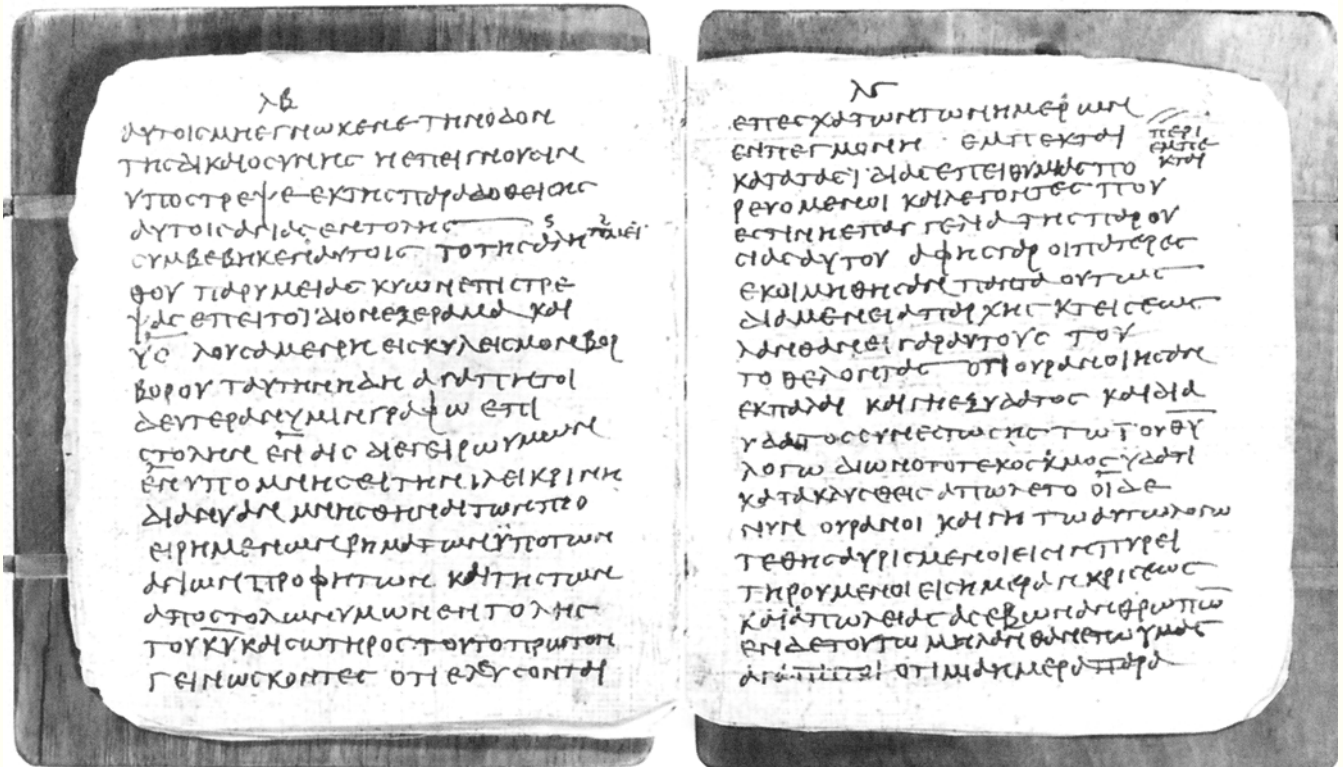 λβ
αυτοισμηεγνωκενετηνοδον
τησδικαιοσυνησ ηεπειγνουσιν
υποστρεψεεκτησπαραδοθεισησ
αυτοισαγιασεντολησ
συμβεβηκεναυτοισ τοτησαλη
θου παρυμειασ κυωνεπιστρε
ψασ επειτοϊδιονεξεραμα και
υσ λουσαμενη εισκυλεισμονβορ
βορου ταυτηνηδη αγαπητοι
δευτερανυμινγραφω επι
στολην εν αισ διεγειρωυμων
ενυπομνησειτηνιλεικρινη
διανυαν μνησθηναιτωνπρο
ειρημενωνρηματωνϋποτων
αγιωνπροφητων καιτησπων
αποστολωνυμωνεντολησ
τουκυκαισωτηροσ τουτοπρωτον
γεινωσκοντεσ οτιελευσονται
λγ
επεσχατωντωνημερων
ενπεγμονη εμπεκται
περι
εμπε
κται
κατατασϊδιασεπειθυμιασπο
ρευομενοι καιλεγοντεσ που
εστινηεπαγγελιατησπαρου
σιασαυτου αφησγαροιπατερεσ
εκοιμηθησανπαντα ουτωσ
διαμενειαπαρχησ κτεισεωσ
λανθανειγαραυτουσ του
τοθελοντασ οτιουρανοιησαν
εκπαλαι καιγηεξυδατοσ καιδια
υδατοσσυνεστωσησ τωτουθυ
λογω διωνοτοτεκοσμοσυδατι
κατακλυσθεισαπωλετο οιδε
νυν ουρανοι καιγη τωαυτωλογω
τεθησαυρισμενοιεισινπυρει
τηρουμενοιεισημερανκρισεωσ
καιαπωλειασασεβωνανθρωπω
ενδετουτω μηλανθανετωυμασ
αγαπητοι οτιμιαημεραπαρα